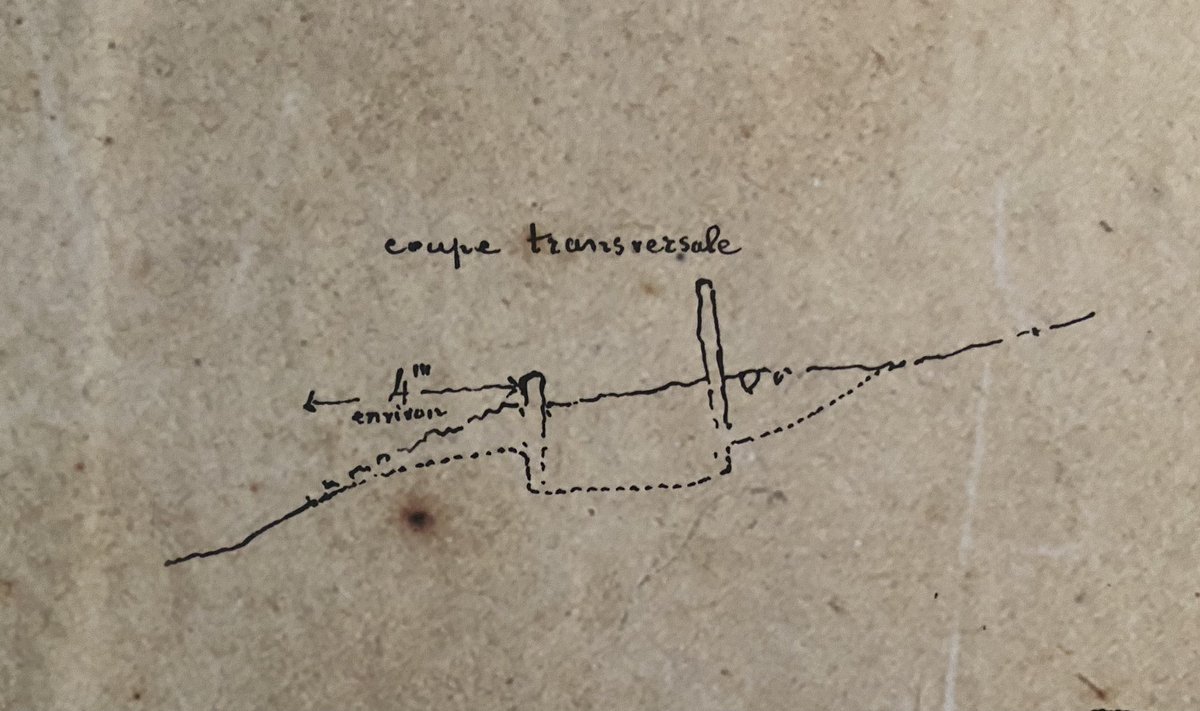 coupe transversale
4m
environ